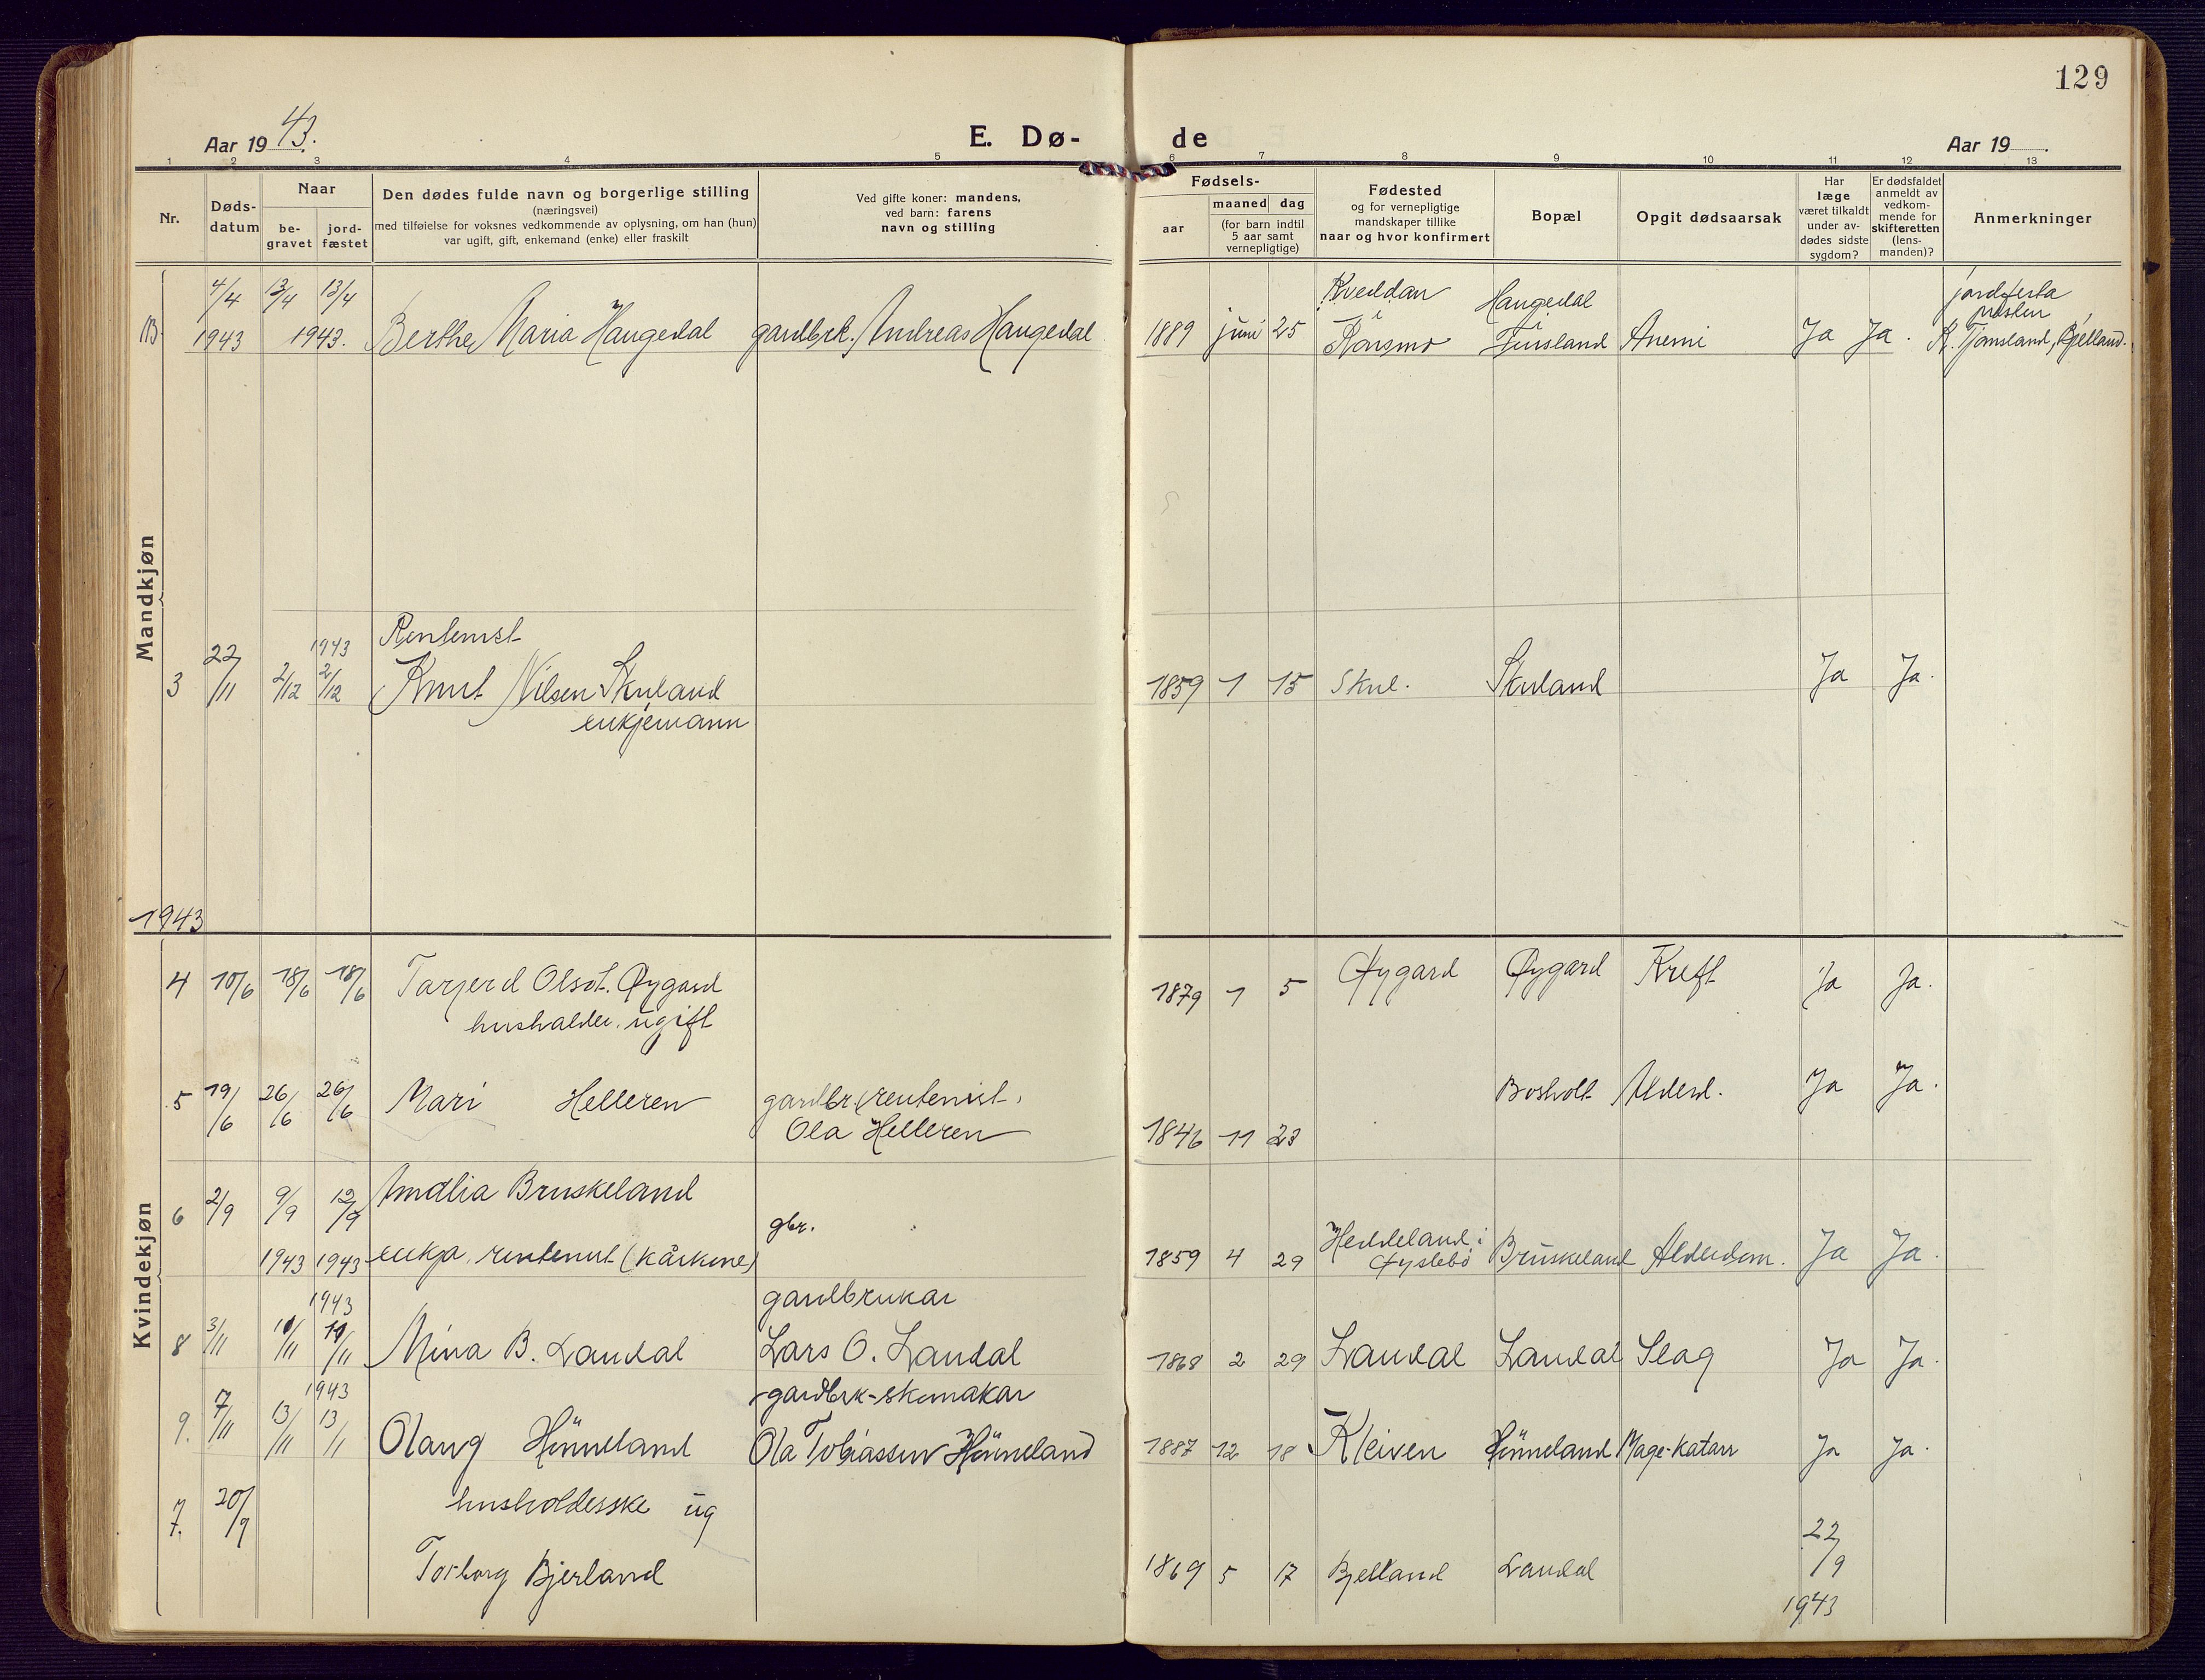 129
Aar 1943.
E. Dø-
de
Aar 19
1 2 3 4 5 6 7 8 9 10 11 12 13
Nr.
Døds-
datum
Naar
be-
gravet
jord-
fæstet
Den dødes fulde navn og borgerlige stilling
(næringsvei)
med tilføielse for voksnes vedkommende av oplysning, om han (hun)
var ugift, gift, enkemand (enke) eller fraskilt
Ved gifte koner: mandens,
ved barn: farens
navn og stilling
Fødsels-
aar
maaned dag
(for barn indtil
5 aar samt
vernepligtige)
Fødested
og for vernepligtige
mandskaper tillike
naar og hvor konfirmert
Bopæl
Opgit dødsaarsak
Har
læge
været tilkaldt
under av-
dødes sidste
sygdom?
Er dødsfaldet
anmeldt av
vedkom-
mende for
skifteretten
(lens-
manden)?
Anmerkninger
Mandkjøn
4/4 13/4 13/4 Kveddan Haugedal jordfesta
i i presten
B. 1943 1943. Berthe Maria Haugedal gardbrk. Andreas Haugedal 1889 juni 25 Finsland Anemi Ja Ja. Tjomsland, Bjelland.
1943 Rentenist
3 22/11 2/12 2/12 Knut Nilsen Skuland 1859 1 15 Skul. Skuland Ja Ja.
enkjemann
1943
Kvindekjøn
4 10/6 18/6 18/6 Tarjerd Olsdt. Øygard 1879 1 5 Øygard Øygard Kreft Ja Ja.
husholder. ugift
5 19/6 26/6 26/6 Mari Helleren gardbr. rentenist. Bosholt Alderd. Ja Ja.
Ola Helleren 1846 11 23
6 2/9 9/9 12/9 Amalia Bruskeland
gbr.
1943 1943 enkja, rentenist (kårkone) 1859 4 29 Heddeland i Øyslebø Bruskeland Alderdom. Ja Ja.
1943 gardbrukar
8 3/11 10/11 10/11 Mina B. Laudal Lars O. Laudal 1868 2 29 Laudal Laudal Slag Ja Ja.
1943 gardbrk-skomakar
9. 7/11 13/11 13/11 Olaug Hønneland Ola Tobiassen Hønneland 1887 12 18 Kleiven Hønneland Mage-katarr Ja Ja.
7. 20/9 husholderske ug
22/9
Torborg Bjerland 1869 5 17 Bjelland Laudal
1943